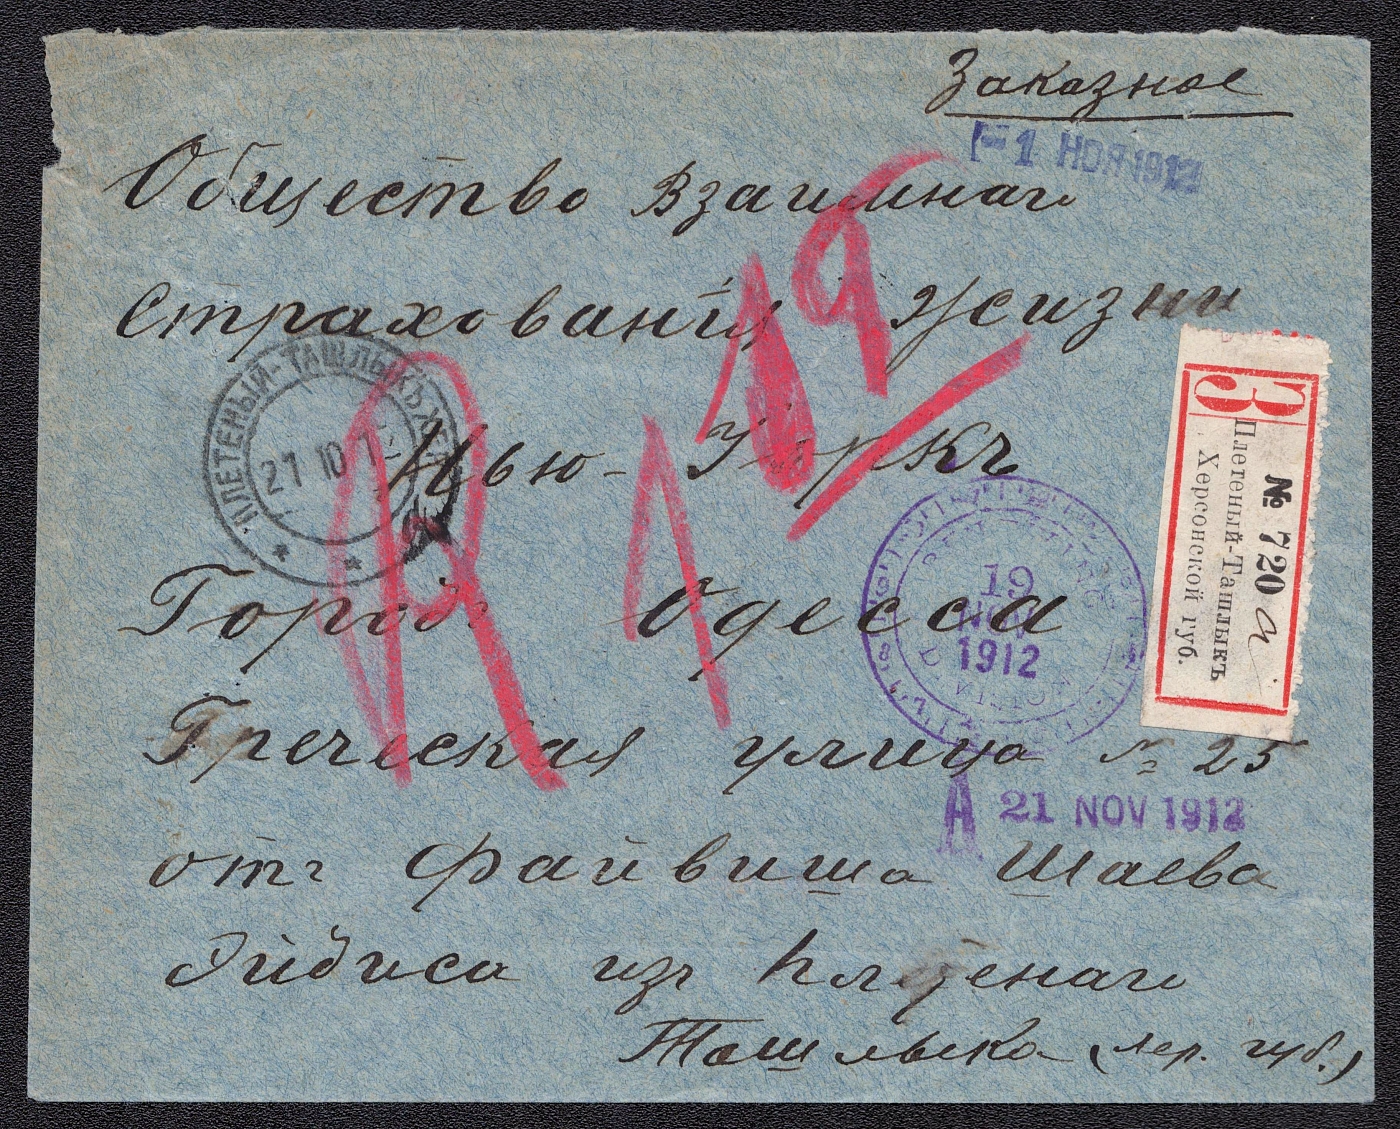 Заказное
-1 НОЯ 1912
Общество Взаимнаго
страхованiя Жизни
Нью-Iоркъ
ПЛЕТЕНЫЙ-ТАШЛЫКЪ ХЕР
27 10 12
R 1
19
З
№ 720 а
Плетеный-Ташлыкъ
Херсонской губ.
Городъ Одесса
19
NOV
1912
Греческая улица № 25
A 21 NOV 1912
отъ Файвиша Шаева
изъ Плетенаго
Ташлыка (Хер. губ.)